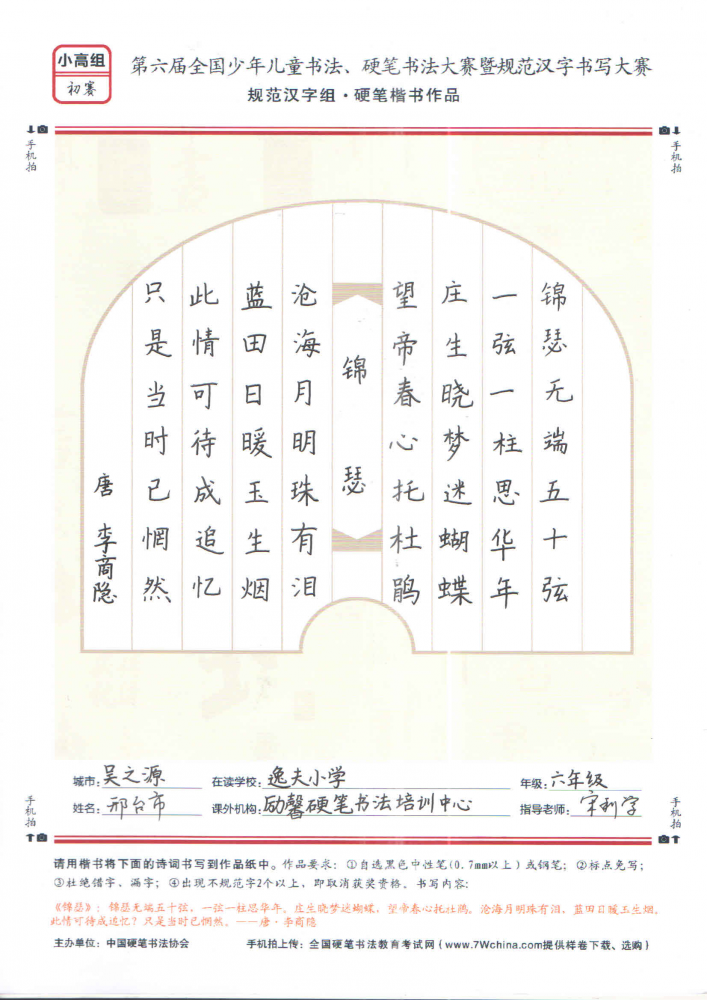 小高组
初赛
第六届全国少年儿童书法、硬笔书法大赛暨规范汉字书写大赛
规范汉字组·硬笔楷书作品
手机拍
手机拍
锦瑟无端五十弦
一弦一柱思华年
庄生晓梦迷蝴蝶
望帝春心托杜鹃
锦瑟
沧海月明珠有泪
蓝田日暖玉生烟
此情可待成追忆
只是当时已惘然
唐 李商隐
城市:吴之源 在读学校:逸夫小学 年级:六年级
姓名:邢台市 课外机构:励馨硬笔书法培训中心 指导老师:宋利学
手机拍
手机拍
请用楷书将下面的诗词书写到作品纸中。作品要求:①自选黑色中性笔(0.7mm以上)或钢笔;②标点免写;
③杜绝错字、漏字;④出现不规范字2个以上,即取消获奖资格。书写内容:
《锦瑟》:锦瑟无端五十弦,一弦一柱思华年。庄生晓梦迷蝴蝶,望帝春心托杜鹃。沧海月明珠有泪,蓝田日暖玉生烟。
此情可待成追忆?只是当时已惘然。——唐·李商隐
主办单位:中国硬笔书法协会 手机拍上传:全国硬笔书法教育考试网(www.7Wchina.com提供样卷下载、选购)